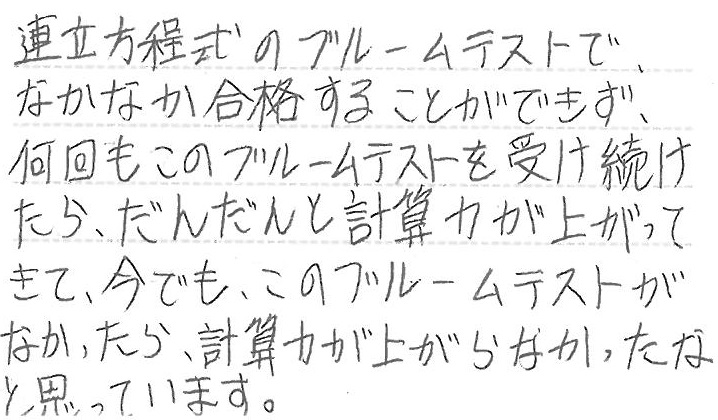 連立方程式のブルームテストで、
なかなか合格することができず、
何回もこのブルームテストを受け続け
たら、だんだんと計算力が上がって
きて、今でも、このブルームテストが
なかったら、計算力が上がらなかったな
と思っています。